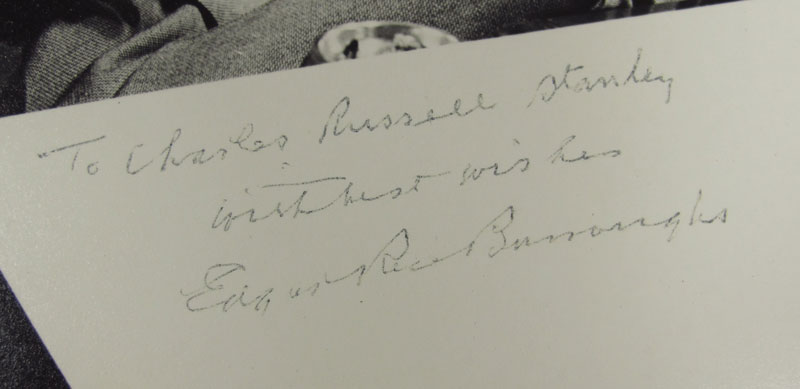 To Charles Russell Stanley
with best wishes
Edgar Rice Burroughs